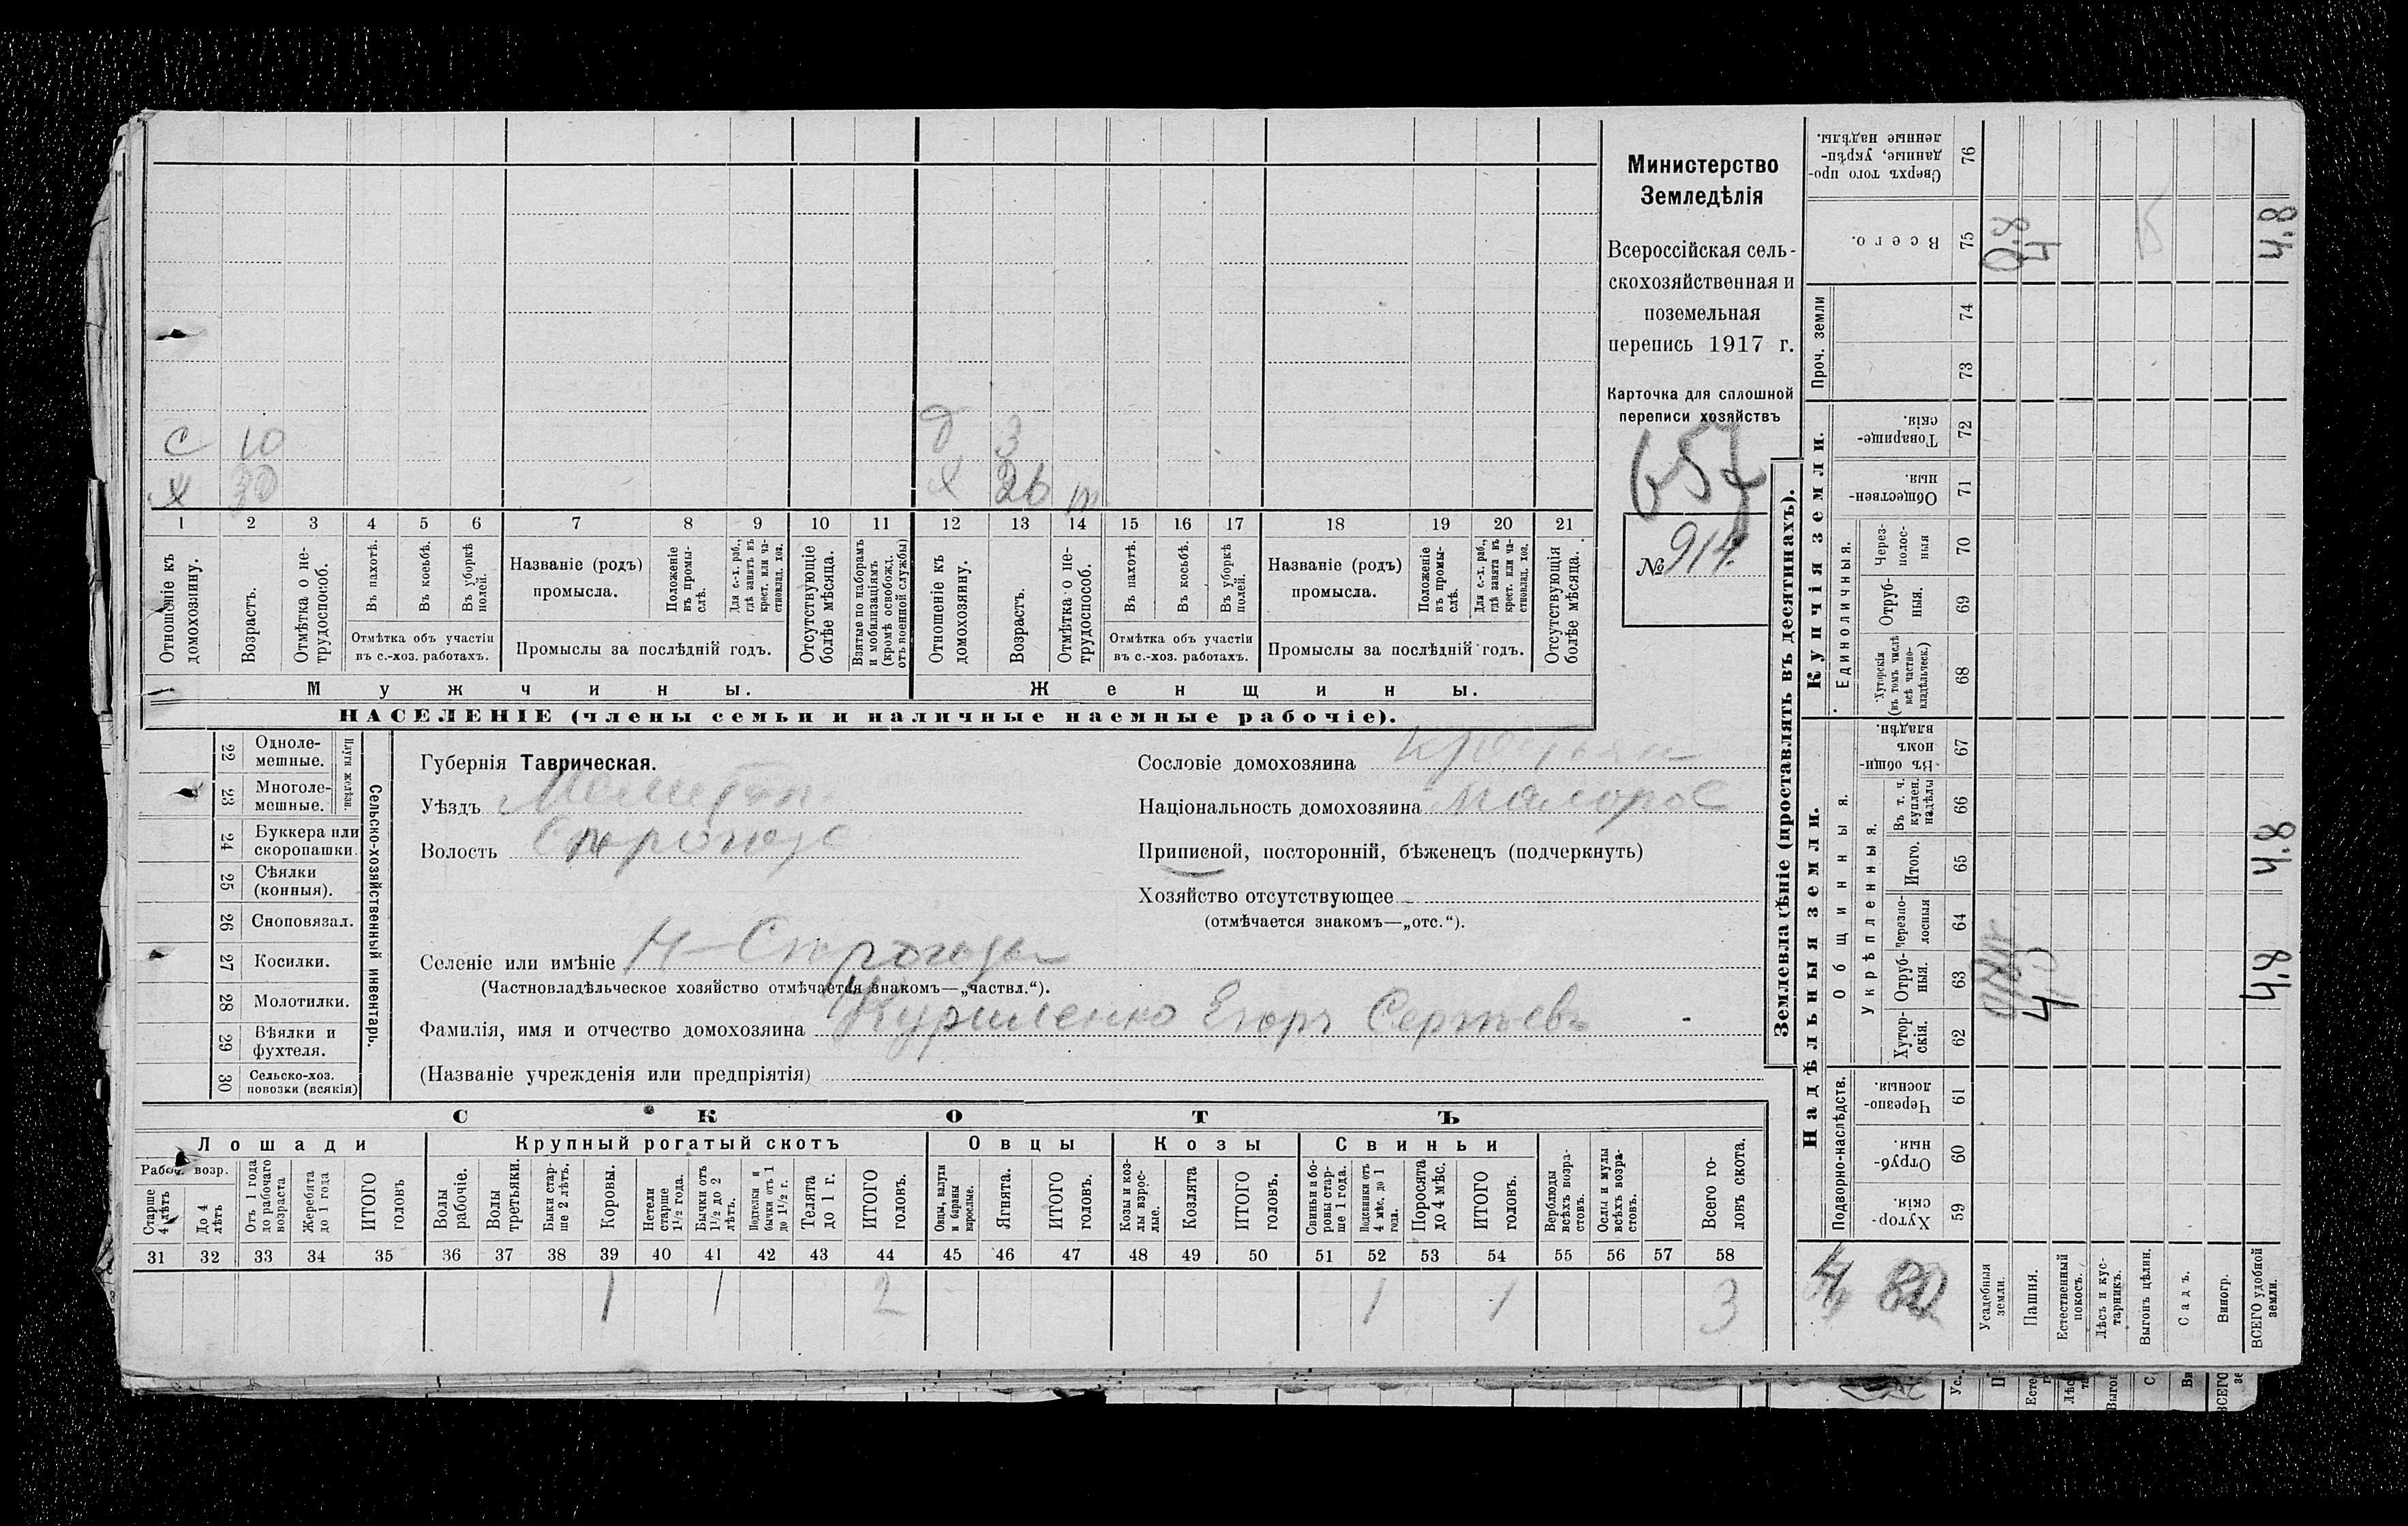 С 10
Х 30
д 3
Х 26 т
1 2 3 4 5 6 7 8 9 10 11 12 13 14 15 16 17 18 19 20 21
Отношеніе къ домохозяину.
Возрастъ.
Отмѣтка о нетрудоспособ.
Въ пахотѣ.
Въ косьбѣ.
Въ уборкѣ полей.
Отмѣтка объ участіи
въ с.-хоз. работахъ.
Названіе (родъ)
промысла.
Положеніе въ промыслѣ.
Для с.-х. раб., гдѣ занятъ въ крест. или частновлад. хоз.
Промыслы за послѣдній годъ.
Отсутствующіе болѣе мѣсяца.
Взятые по наборамъ и мобилизаціямъ (кромѣ освобожд. отъ военной службы)
Отношеніе къ домохозяину.
Возрастъ.
Отмѣтка о нетрудоспособ.
Въ пахотѣ.
Въ косьбѣ.
Въ уборкѣ полей.
Отмѣтка объ участіи
въ с.-хоз. работахъ.
Названіе (родъ)
промысла.
Положеніе въ промыслѣ.
Для с.-х. раб., гдѣ занята въ крест. или частновлад. хоз.
Промыслы за послѣдній годъ.
Отсутствующія болѣе мѣсяца.
Мужчины.
Женщины.
НАСЕЛЕНІЕ (члены семьи и наличные наемные рабочіе).
Министерство
Земледѣлія
Всероссійская сель-
скохозяйственная и
поземельная
перепись 1917 г.
Карточка для сплошной
переписи хозяйствъ
657
№ 914.
22 Однолемешные.
23 Многолемешные.
Плуги желѣзн.
24 Буккера или скоропашки.
25 Сѣялки (конныя).
26 Сноповязал.
27 Косилки.
28 Молотилки.
29 Вѣялки и фухтеля.
30 Сельско-хоз. повозки (всякія)
Сельско-хозяйственный инвентарь.
Губернія Таврическая.
Уѣздъ Мелитоп.
Волость Строгоз
Селеніе или имѣніе Н-Строгозы
(Частновладѣльческое хозяйство отмѣчается знакомъ—„частвл.“).
Фамилія, имя и отчество домохозяина Куриленко Егоръ Сергѣевъ
(Названіе учрежденія или предпріятія)
Сословіе домохозяина крестьян
Національность домохозяина малорос
Приписной, посторонній, бѣженецъ (подчеркнуть)
Хозяйство отсутствующее
(отмѣчается знакомъ—„отс.“).
СКОТЪ
Лошади
Крупный рогатый скотъ
Овцы
Козы
Свиньи
Рабоч. возр.
Старше 4 лѣтъ
До 4 лѣтъ
Отъ 1 года до рабочаго возраста
Жеребята до 1 года
ИТОГО головъ
Волы рабочіе.
Волы третьяки.
Быки старше 2 лѣтъ.
Коровы.
Нетели старше 1 1/2 года.
Бычки отъ 1 1/2 до 2 лѣтъ.
Подтелки и бычки отъ 1 до 1 1/2 г.
Телята до 1 г.
ИТОГО головъ.
Овцы, валухи и бараны взрослые.
Ягнята.
ИТОГО головъ.
Козы и козлы взрослые.
Козлята
ИТОГО головъ.
Свиньи и боровы старше 1 года.
Подсвинки отъ 4 мѣс. до 1 года.
Поросята до 4 мѣс.
ИТОГО головъ.
Верблюды всѣхъ возрастовъ.
Ослы и мулы всѣхъ возрастовъ.
Всего головъ скота.
31 32 33 34 35 36 37 38 39 40 41 42 43 44 45 46 47 48 49 50 51 52 53 54 55 56 57 58
1 1 2 1 1 3
Землевладѣніе (проставлять въ десятинахъ).
Надѣльныя земли.
Купчія земли.
Проч. земли
Подворно-наслѣдств.
Общинныя.
Укрѣпленныя.
Единоличныя.
59 Хуторскія.
60 Отрубныя.
61 Черезполосныя.
62 Хуторскія.
63 Отрубныя.
64 Черезполосныя
65 Итого.
66 Въ т. ч. куплен. надѣлы
67 Въ общинномъ владѣн.
68 Хуторскія (въ томъ числѣ всѣ частновладѣльческ.)
69 Отрубныя.
70 Черезполосныя
71 Общественныя
72 Товарищескія.
73
74
75 Всего.
76 Сверхъ того проданные, укрѣпленные надѣлы.
Усадебныя земли.
Пашня.
Естественный покосъ.
Лѣсъ и кустарникъ.
Выгонъ цѣлин.
Садъ.
Виногр.
ВСЕГО удобной земли.
0,8
4
4.8
4.8
4
4.8